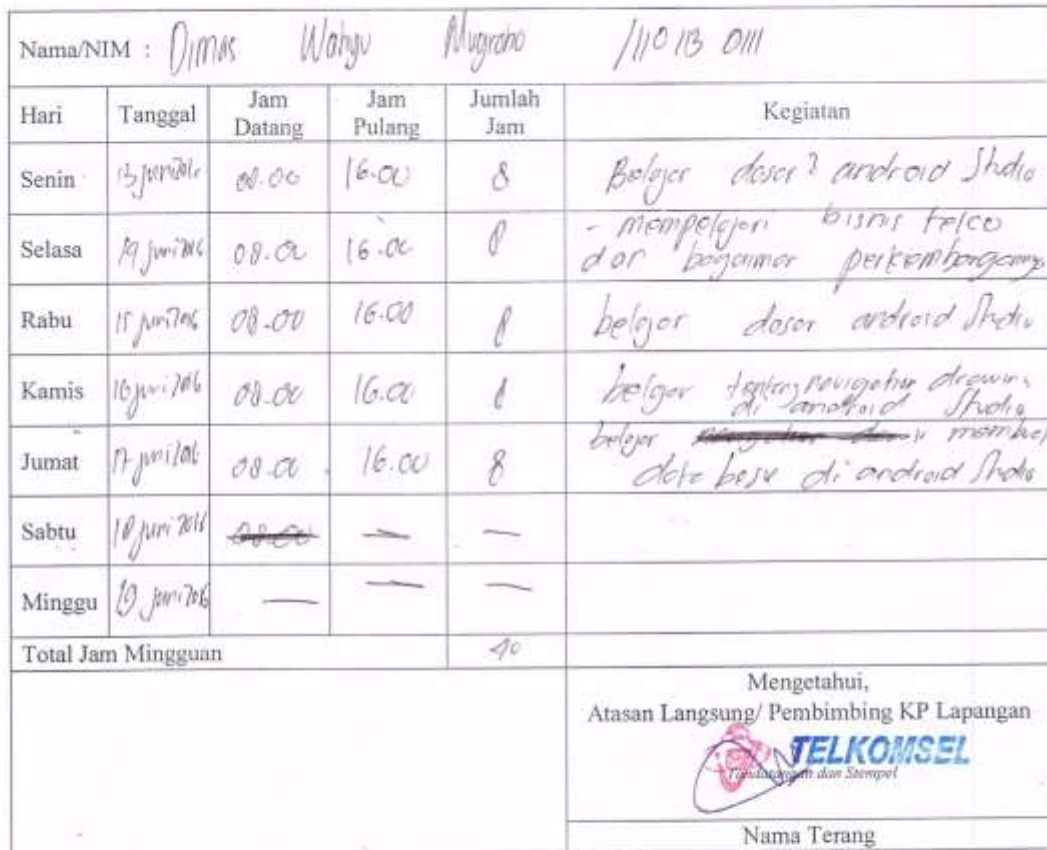 Nama/NIM : Dimas Wahyu Nugroho /110 113 0111
Hari Tanggal Jam Datang Jam Pulang Jumlah Jam Kegiatan
Senin 13 juni 2016 08.00 16.00 8 Belajar dasar2 android Studio
Selasa 14 juni 2016 08.00 16.00 8 - mempelajari bisnis telco
dan bagaimana perkembangannya
Rabu 15 juni 2016 08.00 16.00 8 belajar dasar android Studio
Kamis 16 juni 2016 08.00 16.00 8 belajar tentang navigation drawing
di android Studio
Jumat 17 juni 2016 08.00 16.00 8 belajar
data base di android Studio
Sabtu 18 juni 2016 08.00 — —
Minggu 19 juni 2016 — — —
Total Jam Mingguan 40
Mengetahui,
Atasan Langsung/ Pembimbing KP Lapangan
TELKOMSEL
Tandatangan dan Stempel
Nama Terang